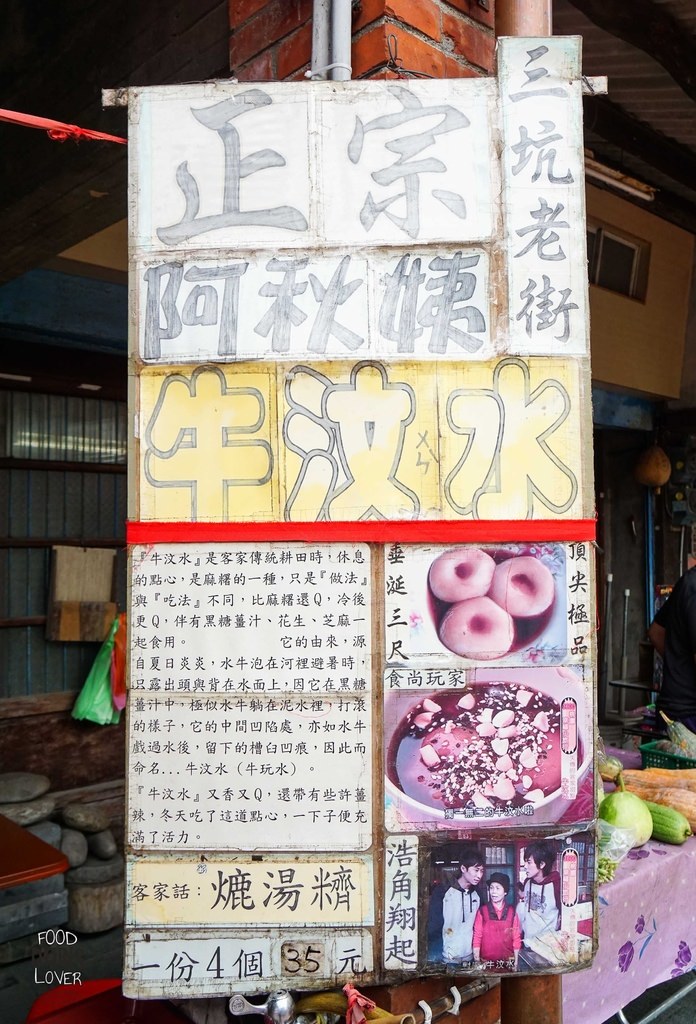 三坑老街
正宗
阿秋姨
牛汶水
ㄨㄣˋ
『牛汶水』是客家傳統耕田時，休息
的點心，是麻糬的一種，只是『做法』
與『吃法』不同，比麻糬還Q，冷後
更Q，伴有黑糖薑汁、花生、芝麻一
起食用。 它的由來，源
自夏日炎炎，水牛泡在河裡避暑時，
只露出頭與背在水面上，因它在黑糖
薑汁中，極似水牛躺在泥水裡，打滾
的樣子，它的中間凹陷處，亦如水牛
戲過水後，留下的槽臼凹痕，因此而
命名...牛汶水（牛玩水）。
『牛汶水』又香又Q，還帶有些許薑
辣，冬天吃了這道點心，一下子便充
滿了活力。
客家話：
湯
一份4個 35 元
垂涎三尺
頂尖極品
食尚玩家
獨一無二的牛汶水啦
浩角翔起
牛汶水
FOOD
LOVER